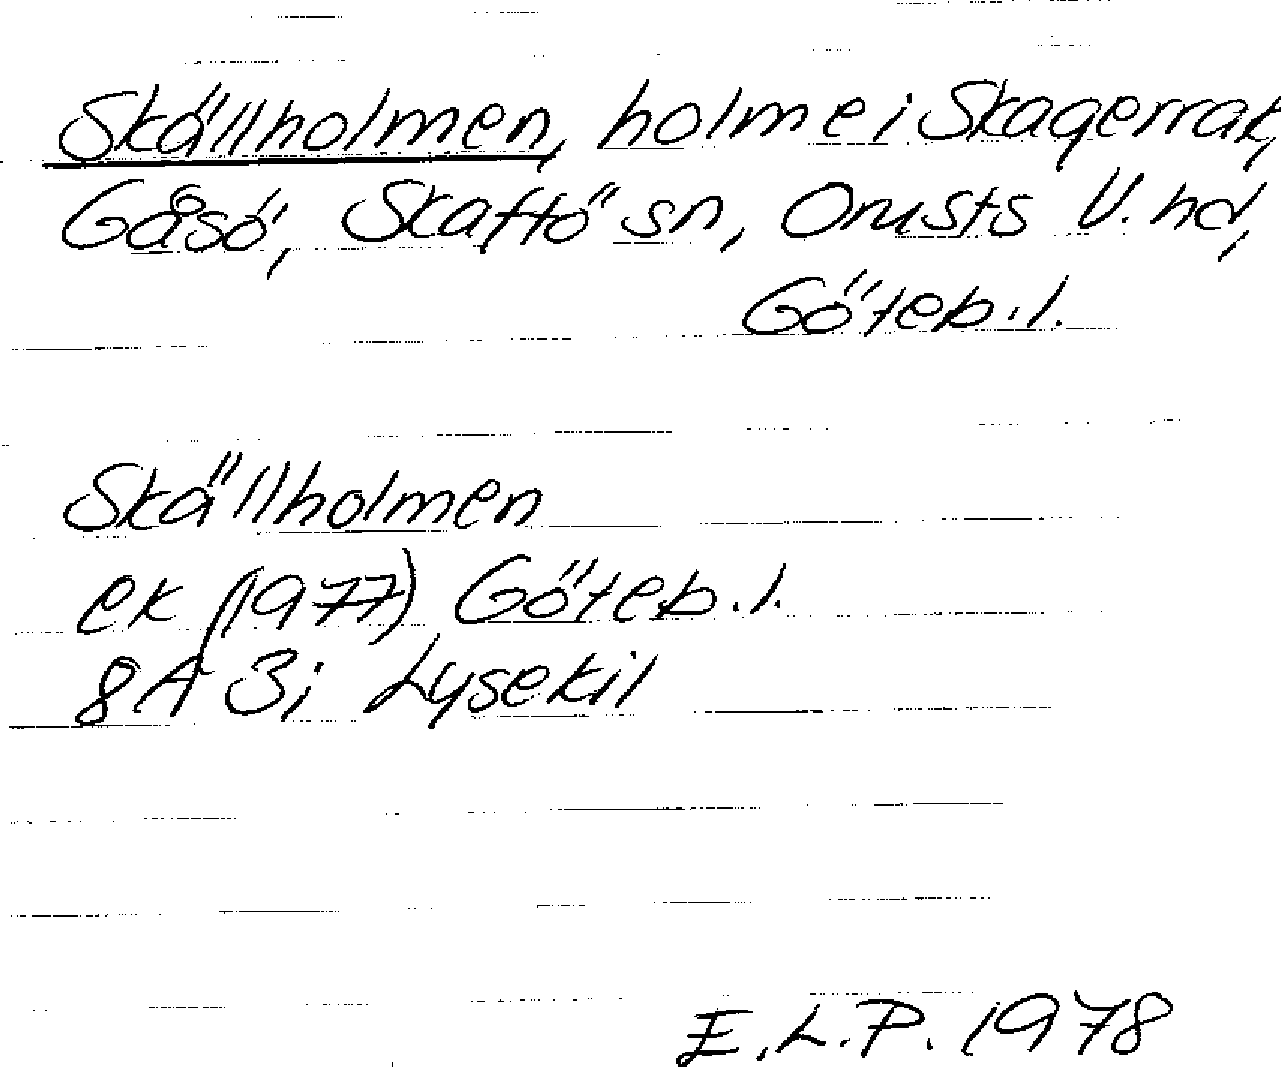 Skällholmen, holme i Skagerrak,
Gåsö, Skaftö sn, Orusts V. hd,
Göteb.l.
Skällholmen
ek (1977) Göteb.l.
8A 3i Lysekil
E.L.P. 1978